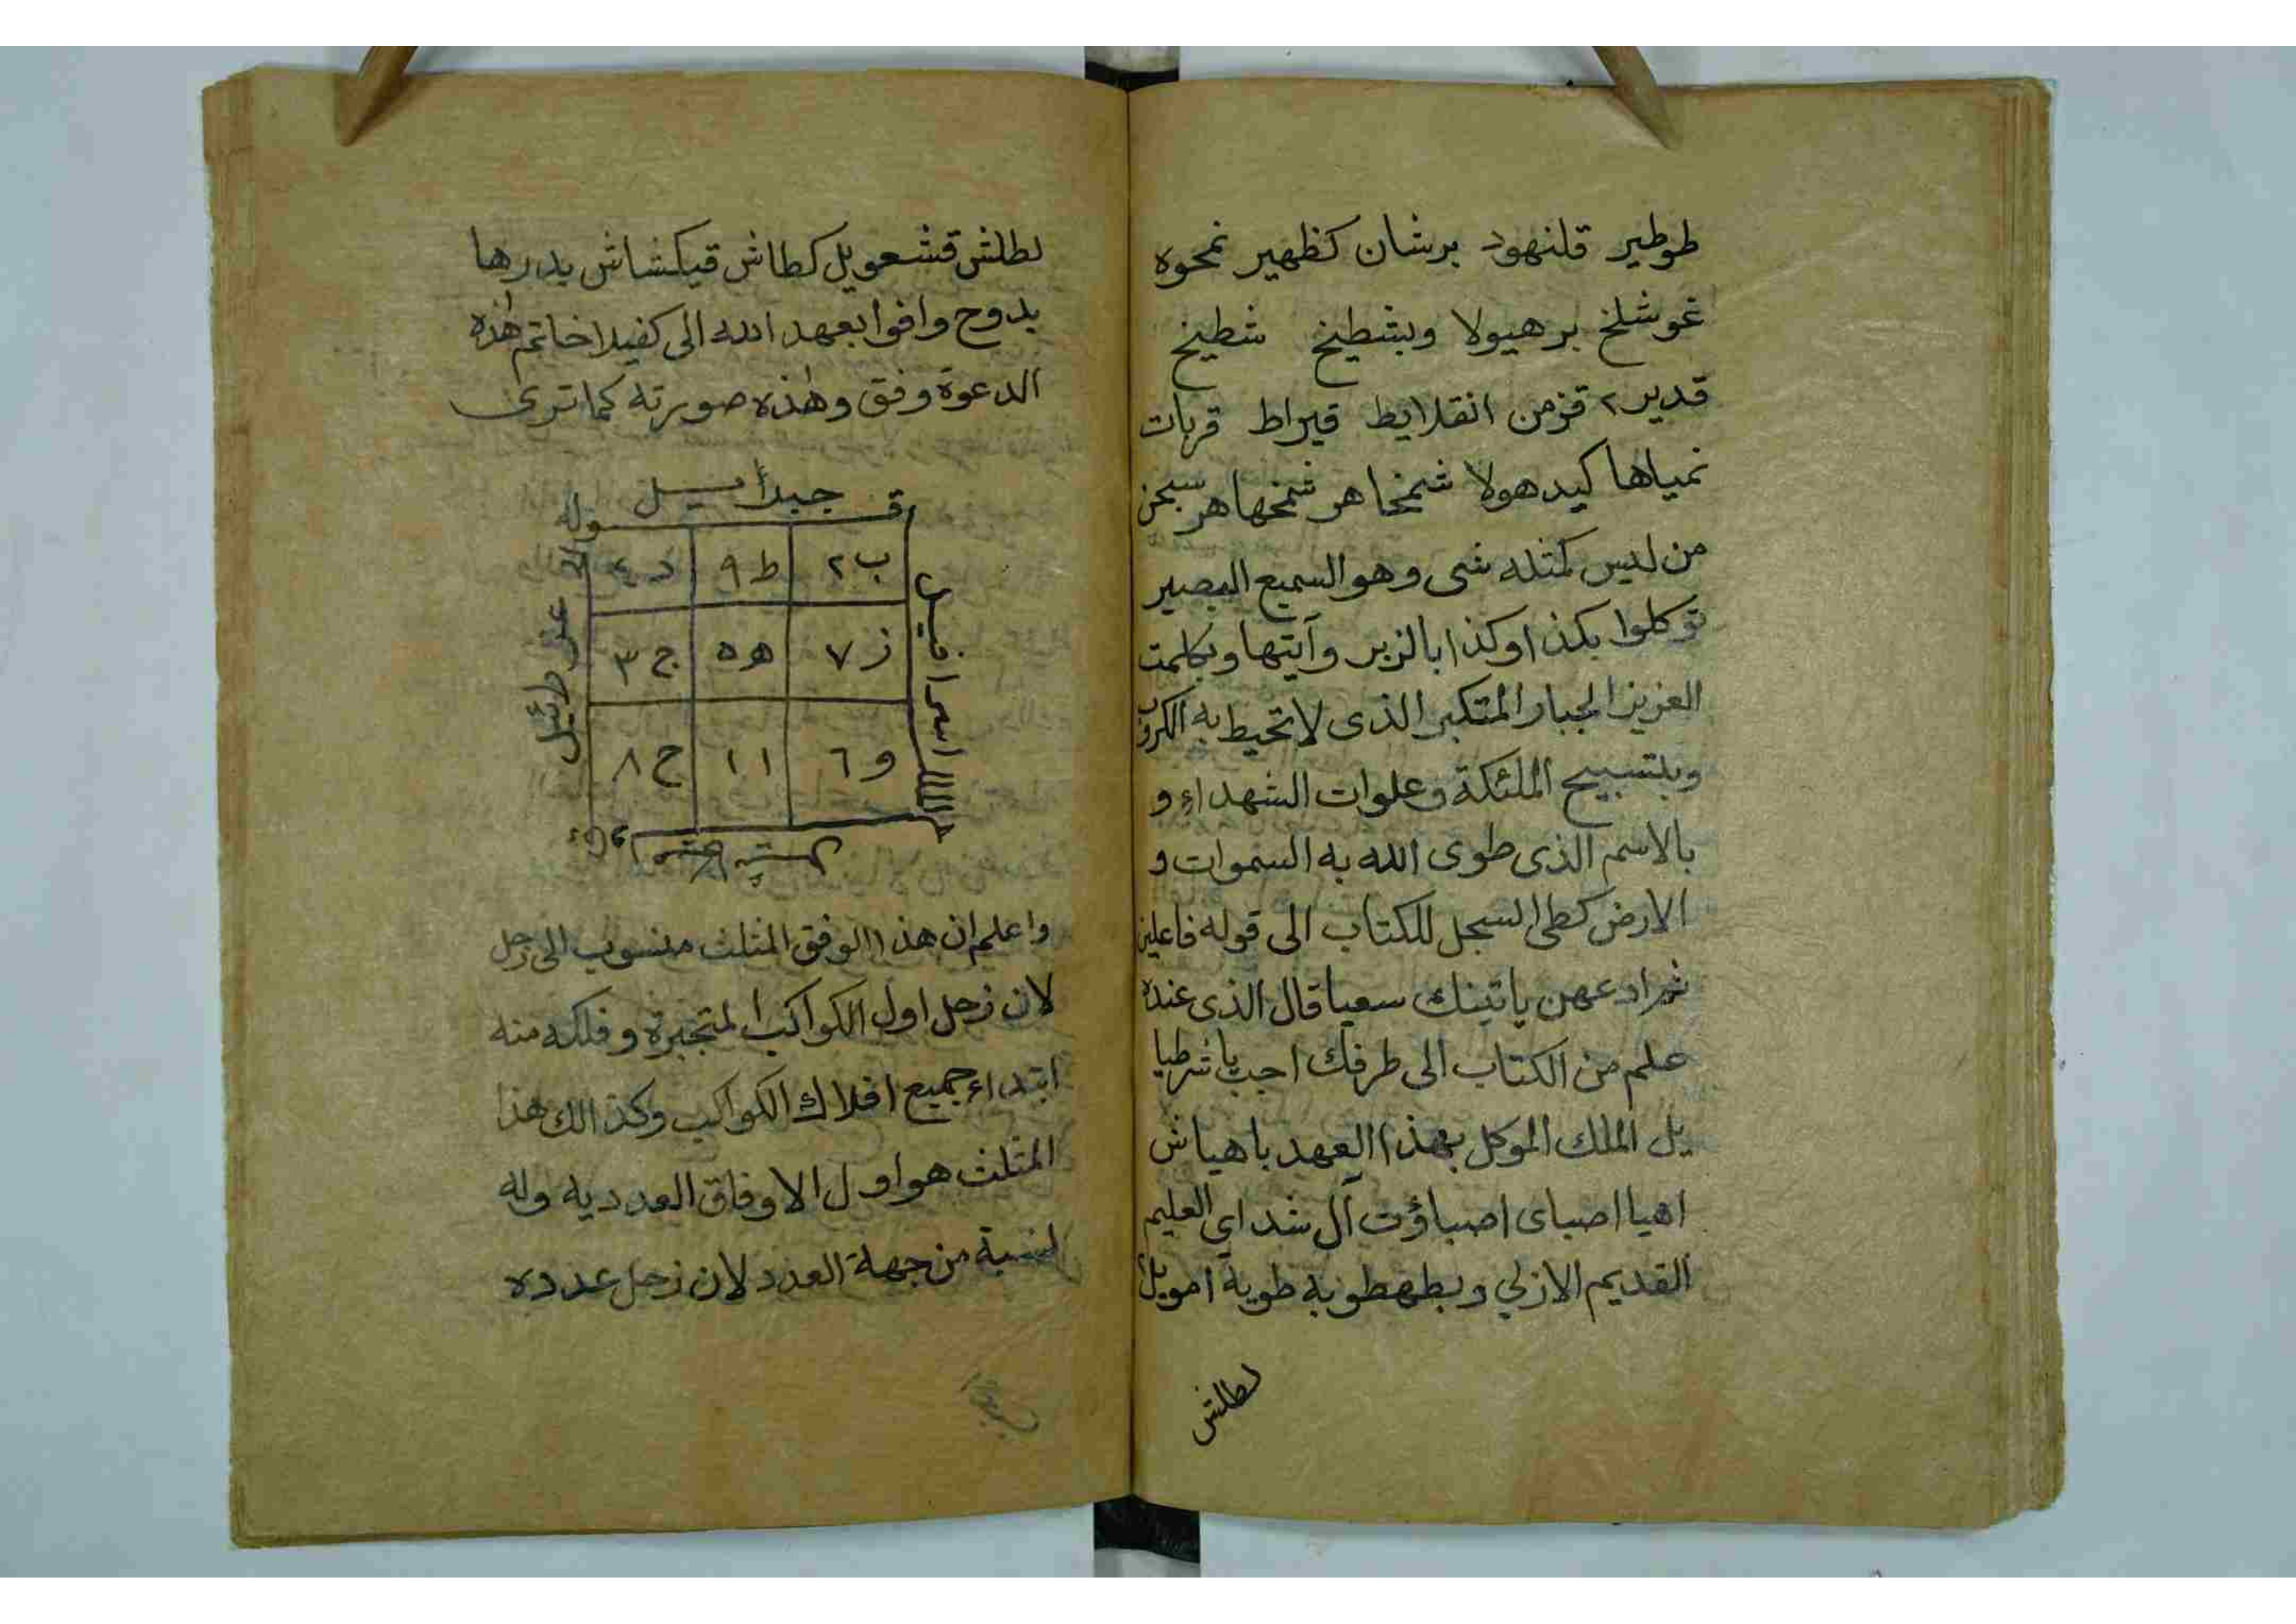 طوطير قلنهود برشان كظهير نمحوه
غوشلخ برهيولا وبشطيخ شطيخ
قدير ٢ قزمن انقلايط قيراط قربات
نمياها كيدهولا شمخاهر شمخهاهر
من ليس كمثله شى وهو السميع البصير
توكلوا بكذا وكذا بالزبر وآيتها وبكلمت
العزيز الجبار المتكبر الذى لا تحيط به الكروب
وبلتسبيح الملئكة وعلوات الشهداء و
بالاسم الذى طوى الله به السموات و
الارض كطى السجل للكتاب الى قوله فاعلين
ثم ادعهن ياتينك سعيا قال الذى عنده
علم من الكتاب الى طرفك اجب يا شرطيا
يل الملك الموكل بهذا العهد باهياش
اهيا اصباى اصباؤت آل شداى العليم
القديم الازلي وبطهطوبه طوبة امويل
لطلش
لطلش قشعويل كطاش قيكشاش يدرها
بدوح وافوا بعهد الله الى كفيلا خاتم هذه
الدعوة وفق وهذه صورته كما ترى
جبرأئيل
قوله
ب ٢ ط ٩ د ٤
ز ٧ ه ٥ ج ٣
و ٦ ١ ا ح ٨
اسرافيل
عزرائيل
واعلم ان هذا الوفق المثلث منسوب الى زحل
لان زحل اول الكواكب المتجبرة وفلكه منه
ابتداء جميع افلاك الكواكب وكذالك هذا
المثلث هو اول الاوفاق العدديه وله
نسبة من جهة العدد لان زحل عدده